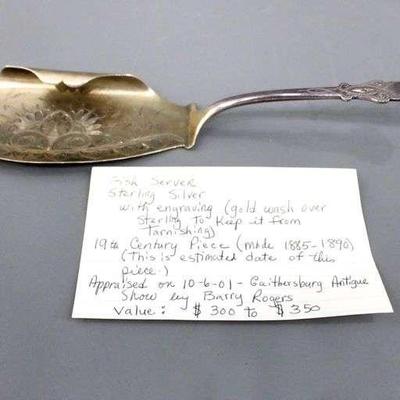 Fish Server
Sterling Silver
with engraving (gold wash over
Sterling to keep it from
tarnishing)
19th Century Piece (made 1885-1890)
(This is estimated date of this
piece.)
Appraised on 10-6-01 - Gaithersburg Antique
Show by Barry Rogers
Value: $300 to $350